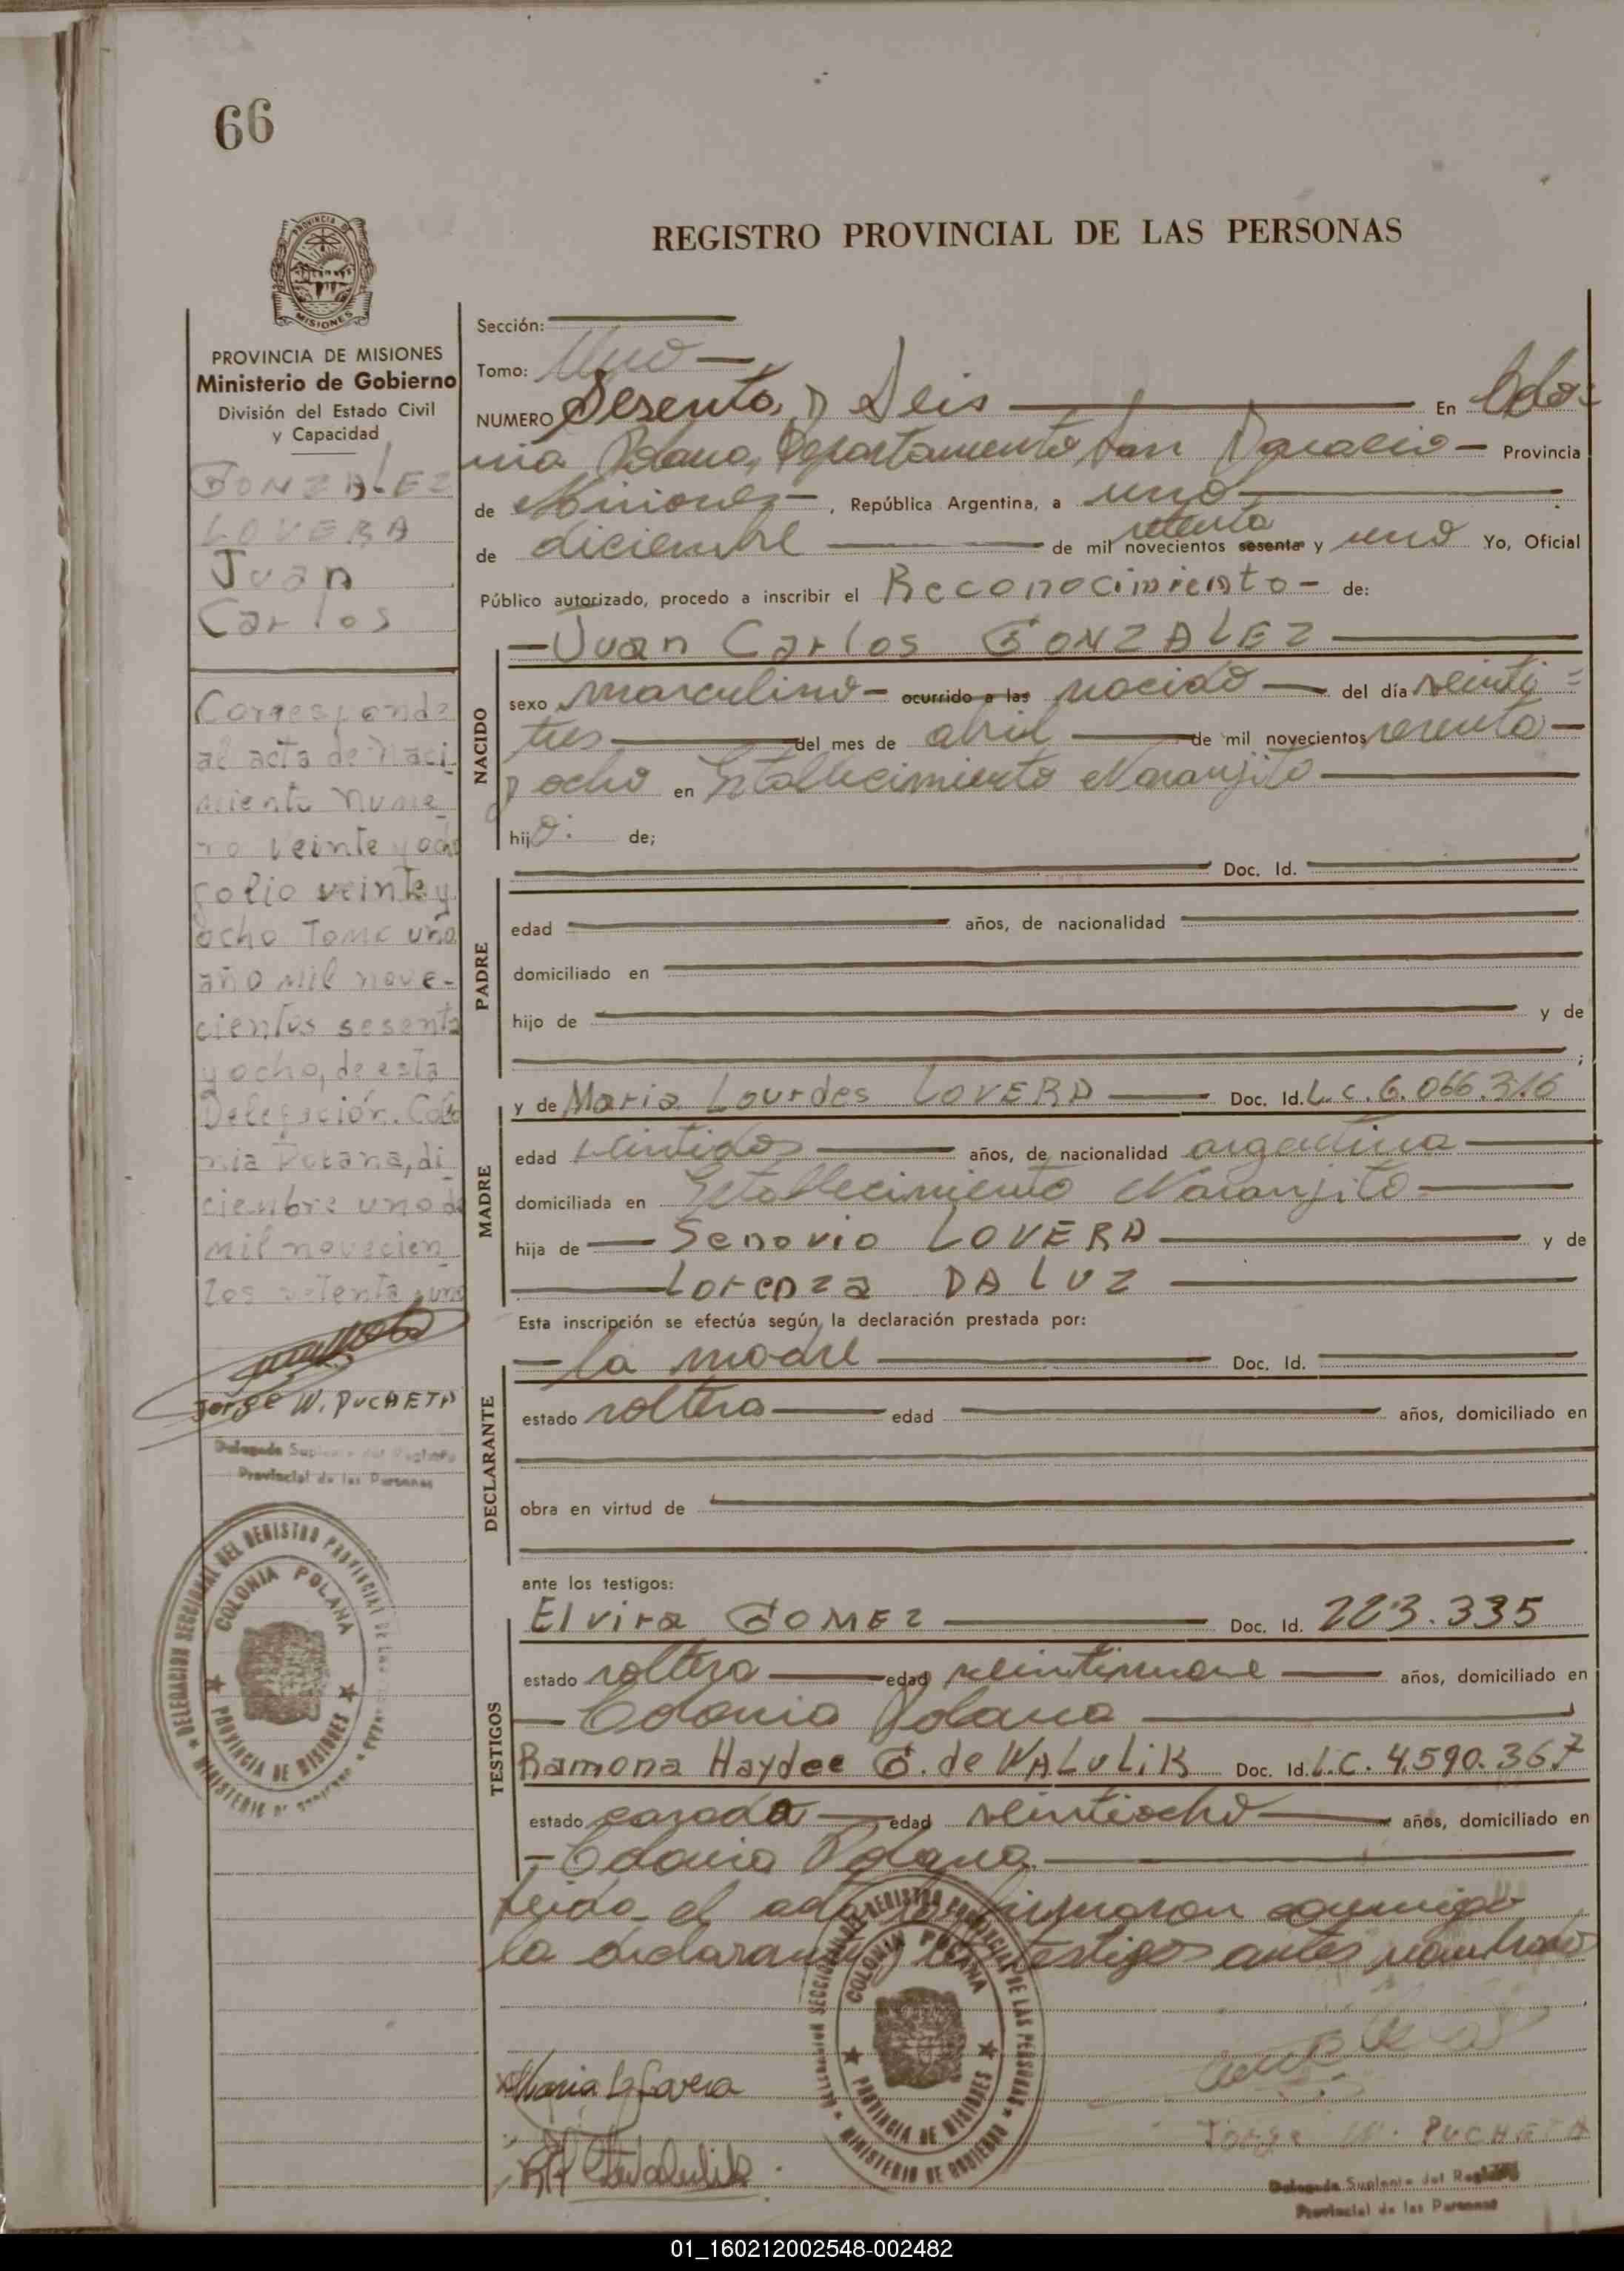 66
PROVINCIA
MISIONES
REGISTRO PROVINCIAL DE LAS PERSONAS
PROVINCIA DE MISIONES
Ministerio de Gobierno
División del Estado Civil
y Capacidad
GONZALEZ
LOVERA
Juan
Carlos
Corresponde
al acta de Naci
miento Nume
ro veinte y ocho
folio veinte y
ocho Tomo uno
año mil nove-
cientos sesenta
y ocho, de esta
Delegación. Colo
nia Polana, di
ciembre uno de
mil novecien
tos setenta y uno
Jorge W. PUCHETA
Delegado Suplente del Registro
Provincial de las Personas
DELEGACION SECCIONAL DEL REGISTRO PROVINCIAL DE LAS PERSONAS
COLONIA POLANA
PROVINCIA DE MISIONES
MINISTERIO DE GOBIERNO
Sección:
Tomo: Uno
NUMERO Sesenta y Seis En Colo=
nia Polana, Departamento San Ignacio Provincia
de Misiones, República Argentina, a uno
setenta
de diciembre de mil novecientos sesenta y uno Yo, Oficial
Público autorizado, procedo a inscribir el Reconocimiento de:
Juan Carlos GONZALEZ
NACIDO
sexo masculino ocurrido a las nacido del día veinti=
tres del mes de abril de mil novecientos sesenta
y ocho en Establecimiento Naranjito
hijo: de;
PADRE
Doc. Id.
edad años, de nacionalidad
domiciliado en
hijo de y de
;
MADRE
y de Maria Lourdes LOVERA Doc. Id. L.C. 6.066.316
edad veintidos años, de nacionalidad argentina
domiciliada en Establecimiento Naranjito
hija de Senovio LOVERA y de
Lorenza DA LUZ
Esta inscripción se efectúa según la declaración prestada por:
DECLARANTE
la madre Doc. Id.
estado soltera edad años, domiciliado en
obra en virtud de
ante los testigos:
TESTIGOS
Elvira GOMEZ Doc. Id. 223.335
estado soltera edad veintinueve años, domiciliado en
Colonia Polana
Ramona Haydee G. de WALULIK Doc. Id. L.C. 4.590.367
estado casada edad veintiocho años, domiciliado en
Colonia Polana
Leida el acta firmaron conmigo
la declarante y los testigos antes nombrados
DELEGACION SECCIONAL DEL REGISTRO PROVINCIAL DE LAS PERSONAS
COLONIA POLANA
PROVINCIA DE MISIONES
MINISTERIO DE GOBIERNO
Maria L Lovera
Jorge W. PUCHETA
Delegado Suplente del Registro
Provincial de las Personas
01_160212002548-002482